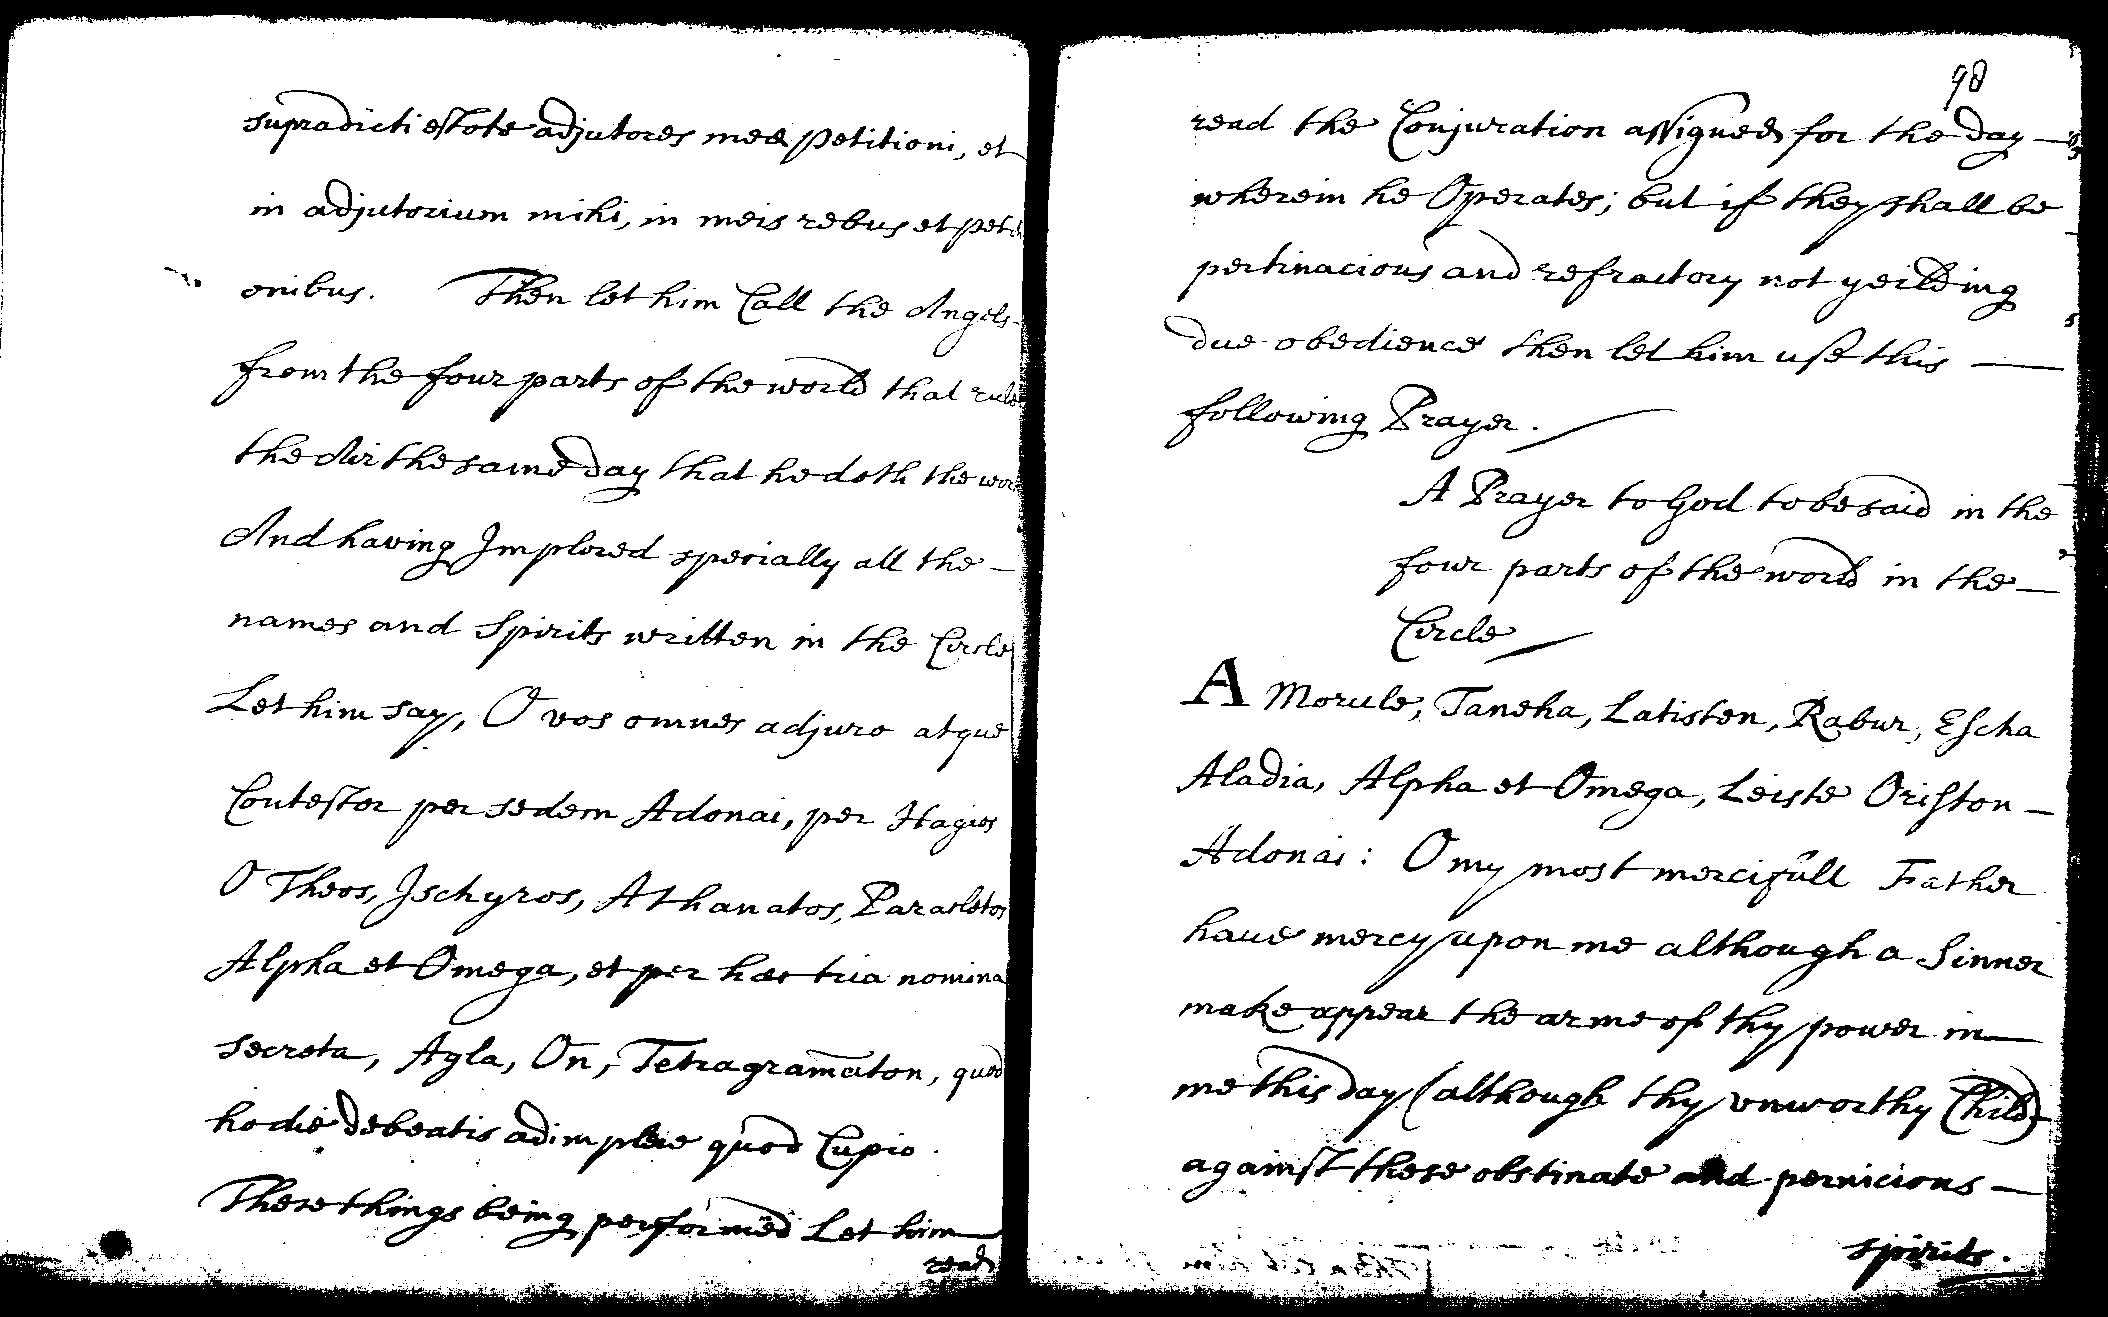 supradicti estote adjutores meæ petitioni, et
in adjutorium mihi, in meis rebus et peti
onibus. Then let him Call the Angels
from the four parts of the world that rule
the Air the same day that he doth the wor
And having Implored specially all the —
names and Spirits written in the Circle
Let him say, O vos omnes adjuro atque
Contestor per sedem Adonai, per Hagios
O Theos, Ischyros, Athanatos, Paracletos
Alpha et Omega, et per hæc tria nomina
secreta, Agla, On, Tetragram̄aton, quod
hodie debeatis adimplere quod Cupio.
These things being performed Let him
read
98
read the Conjuration assigned for the day —
wherein he Operates; but if they shall be
pertinacious and refractory not yeilding
due obedience then let him use this —
following Prayer.
A Prayer to God to be said in the
four parts of the world in the —
Circle
A Morule, Taneha, Latisten, Rabur, Escha
Aladia, Alpha et Omega, Leiste Oriston —
Adonai: O my most mercifull Father
have mercy upon me although a Sinner
make appear the arme of thy power in
me this day (although thy unworthy Child)
against these obstinate and pernicious —
spirits.